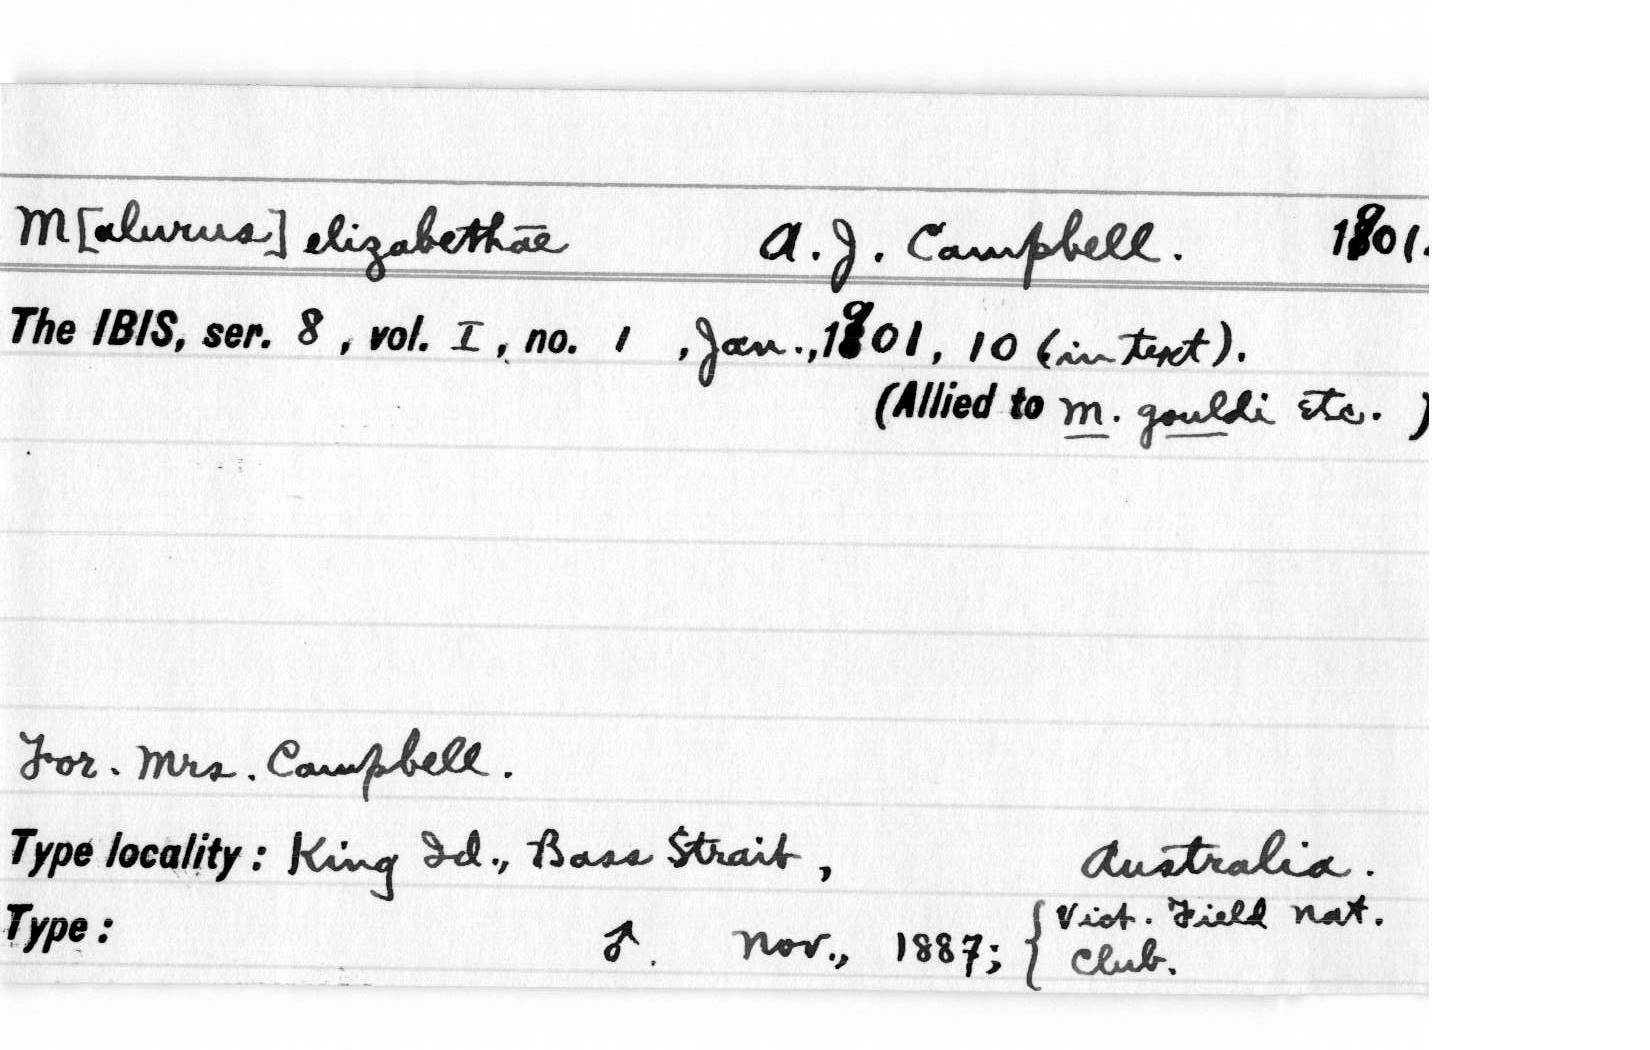 M[alurus] elizabethae A. J. Campbell. 1901.
The IBIS, ser. 8, vol. I, no. 1, Jan., 1901, 10 (in text).
(Allied to M. gouldi etc. )
For. Mrs. Campbell.
Type locality: King Id., Bass Strait, Australia.
Type: ♂. Nov., 1887; { Vict. Field Nat.
Club.